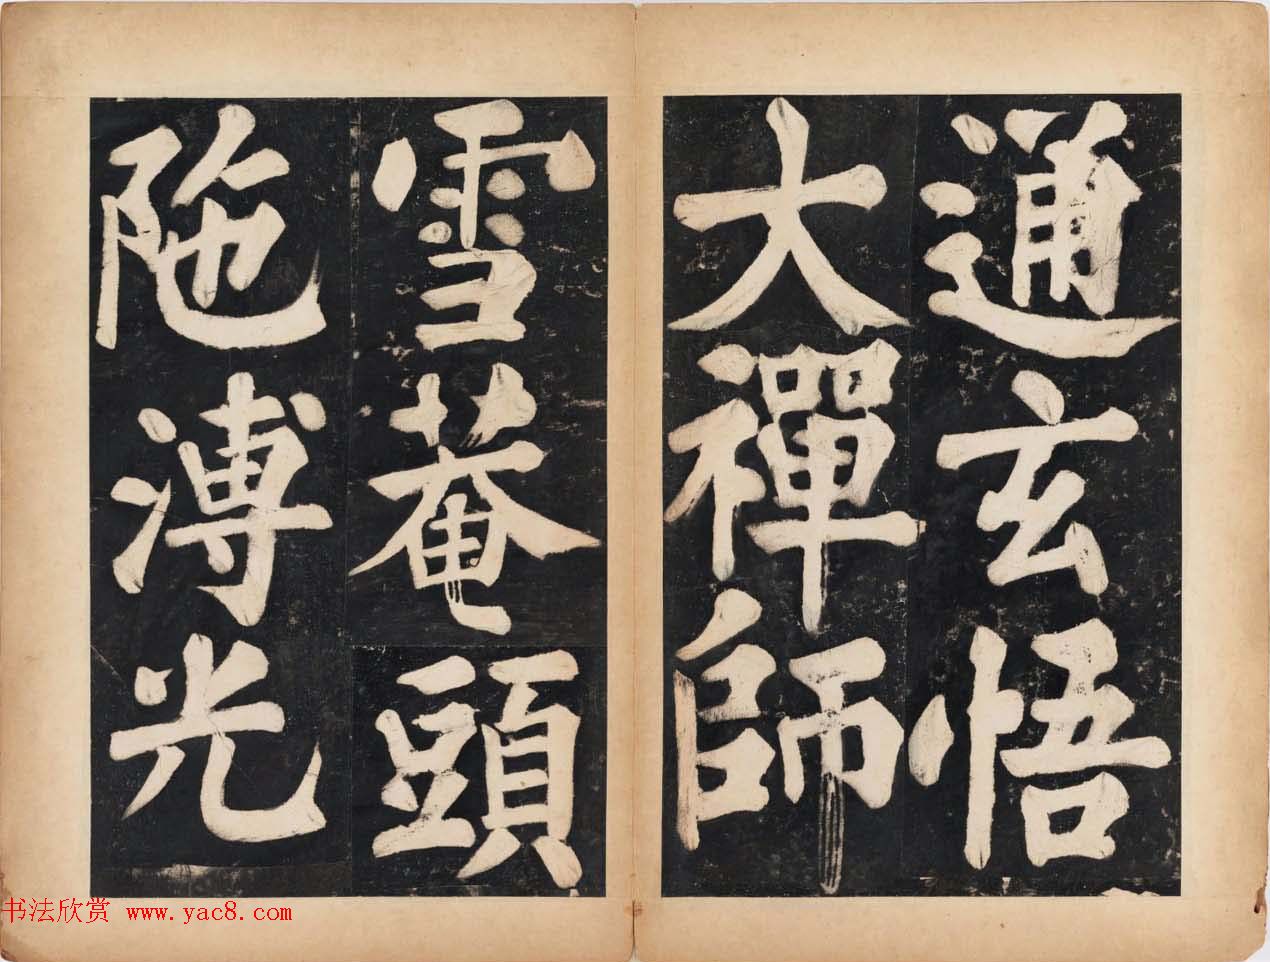 通玄悟
大禪師
雪菴頭
陁溥光
书法欣赏 www.yac8.com